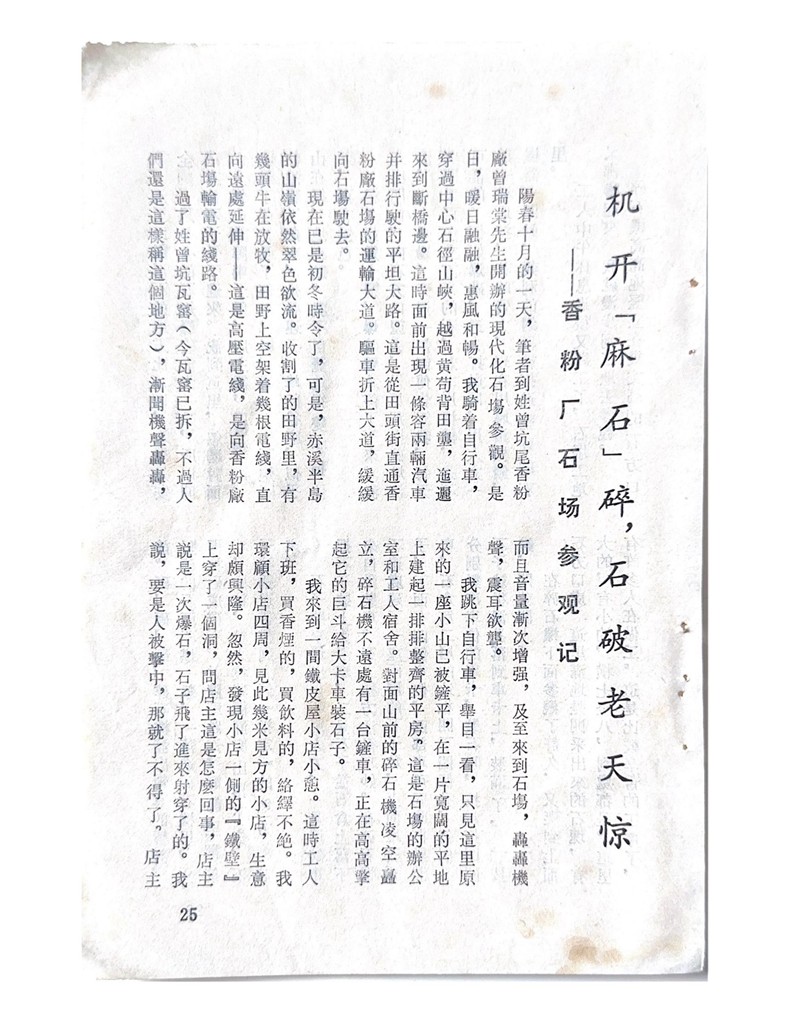 机开「麻石」碎，石破老天惊
——香粉厂石场参观记
陽春十月的一天，筆者到姓曾坑尾香粉
廠曾瑞棠先生開辦的現代化石塲參觀。是
日，暖日融融，惠風和暢。我騎着自行車，
穿過中心石徑山峽，越過黄苟背田壟，迤邐
來到斷橋邊。這時面前出現一條容兩輛汽車
并排行駛的平坦大路。這是從田頭街直通香
粉廠石塲的運輸大道。驅車折上大道，緩緩
向石塲駛去。
現在已是初冬時令了，可是，赤溪半島
的山嶺依然翠色欲流。收割了的田野里，有
幾頭牛在放牧，田野上空架着幾根電綫，直
向遠處延伸——這是高壓電綫，是向香粉廠
石塲輸電的綫路。
過了姓曾坑瓦窰（今瓦窰已拆，不過人
們還是這樣稱這個地方），漸聞機聲轟轟，
而且音量漸次增强，及至來到石塲，轟轟機
聲，震耳欲聾。
我跳下自行車，舉目一看，只見這里原
來的一座小山已被鏟平，在一片寬闊的平地
上建起一排排整齊的平房。這是石塲的辦公
室和工人宿舍。對面山前的碎石機凌空矗
立，碎石機不遠處有一台鏟車，正在高高擎
起它的巨斗給大卡車裝石子。
我來到一間鐵皮屋小店小憩。這時工人
下班，買香煙的，買飲料的，絡繹不絶。我
環顧小店四周，見此幾米見方的小店，生意
却頗興隆。忽然，發現小店一側的『鐵壁』
上穿了一個洞，問店主這是怎麽回事，店主
説是一次爆石，石子飛了進來射穿了的。我
説，要是人被擊中，那就了不得了。店主
25